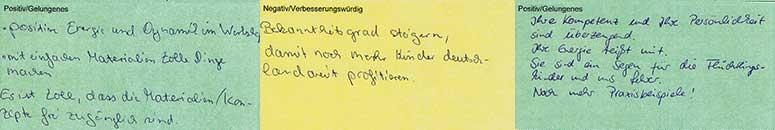 Positiv/Gelungenes
• positive Energie und Dynamik im Workshop
• mit einfachen Materialien tolle Dinge
machen
Es ist toll, dass die Materialien/Kon-
zepte frei zugänglich sind.
Negativ/Verbesserungswürdig
Bekanntheitsgrad steigern,
damit noch mehr Kinder deutsch-
landweit profitieren.
Positiv/Gelungenes
Ihre Kompetenz und Ihre Persönlichkeit
sind überzeugend.
Ihre Energie reißt mit.
Sie sind ein Segen für die Flüchtlings-
kinder und uns Lehrer.
Noch mehr Praxisbeispiele!